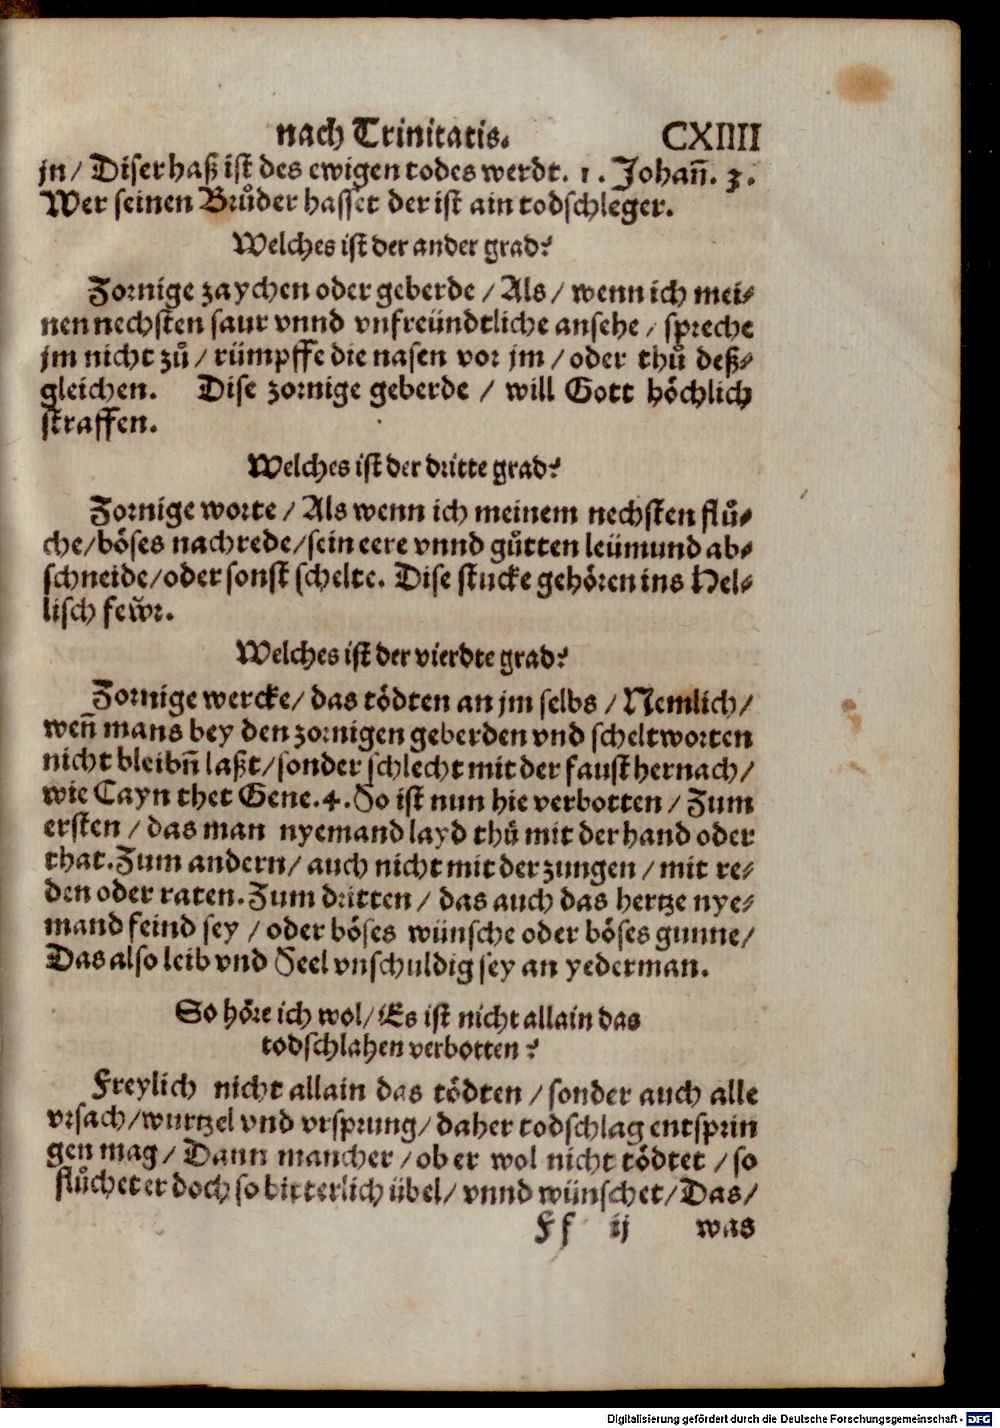 nach Trinitatis. CXIIII
jn / Diser haß ist des ewigen todes werdt. 1. Johañ. 3.
Wer seinen Brůder hasset der ist ain todschleger.
Welches ist der ander grad?
Zornige zaychen oder geberde / Als / wenn ich mei⸗
nen nechsten saur vnnd vnfreündtliche ansehe / spreche
jm nicht zů / rümpffe die nasen vor jm / oder thů deß⸗
gleichen. Dise zornige geberde / will Gott höchlich
straffen.
Welches ist der dritte grad?
Zornige worte / Als wenn ich meinem nechsten flů⸗
che / böses nachrede / sein eere vnnd gůtten leümund ab⸗
schneide / oder sonst schelte. Dise stucke gehören ins Hel⸗
lisch fewr.
Welches ist der vierdte grad?
Zornige wercke / das tödten an jm selbs / Nemlich /
weñ mans bey den zornigen geberden vnd scheltworten
nicht bleibñ laßt / sonder schlecht mit der faust hernach /
wie Cayn thet Gene. 4. So ist nun hie verbotten / Zum
ersten / das man nyemand layd thů mit der hand oder
that. Zum andern / auch nicht mit der zungen / mit re⸗
den oder raten. Zum dritten / das auch das hertze nye⸗
mand feind sey / oder böses wünsche oder böses gunne /
Das also leib vnd Seel vnschuldig sey an yederman.
So höre ich wol / Es ist nicht allain das
todschlahen verbotten?
Freylich nicht allain das tödten / sonder auch alle
vrsach / wurtzel vnd vrsprung / daher todschlag entsprin
gen mag / Dann mancher / ob er wol nicht tödtet / so
flůchet er doch so bitterlich übel / vnnd wünschet / Das /
Ff ij was
Digitalisierung gefördert durch die Deutsche Forschungsgemeinschaft - DFG